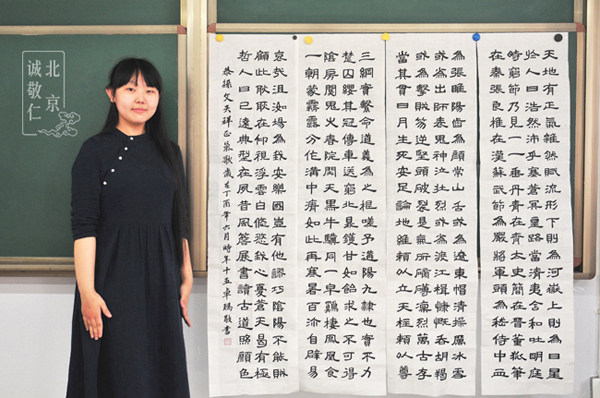 北京
诚敬仁
天地有正氣雜然賦流形下則為河嶽上則為日星
於人曰浩然沛乎塞蒼冥皇路當清夷含和吐明庭
時窮節乃見一一垂丹青在齊太史簡在晉董狐筆
在秦張良椎在漢蘇武節為嚴將軍頭為嵇侍中血
為張睢陽齒為顏常山舌或為遼東帽清操厲冰雪
或為出師表鬼神泣壯烈或為渡江楫慷慨吞胡羯
或為擊賊笏逆豎頭破裂是氣所磅礴凜烈萬古存
當其貫日月生死安足論地維賴以立天柱賴以尊
三綱實繫命道義為之根嗟予遘陽九隸也實不力
楚囚纓其冠傳車送窮北鼎鑊甘如飴求之不可得
陰房闃鬼火春院閟天黑牛驥同一皁雞棲鳳凰食
一朝蒙霧露分作溝中瘠如此再寒暑百沴自辟易
哀哉沮洳場為我安樂國豈有他謬巧陰陽不能賊
顧此耿耿在仰視浮雲白悠悠我心憂蒼天曷有極
哲人日已遠典型在夙昔風簷展書讀古道照顏色
恭操文天祥正氣歌歲在丁酉年六月時年十五卓瑪敬書